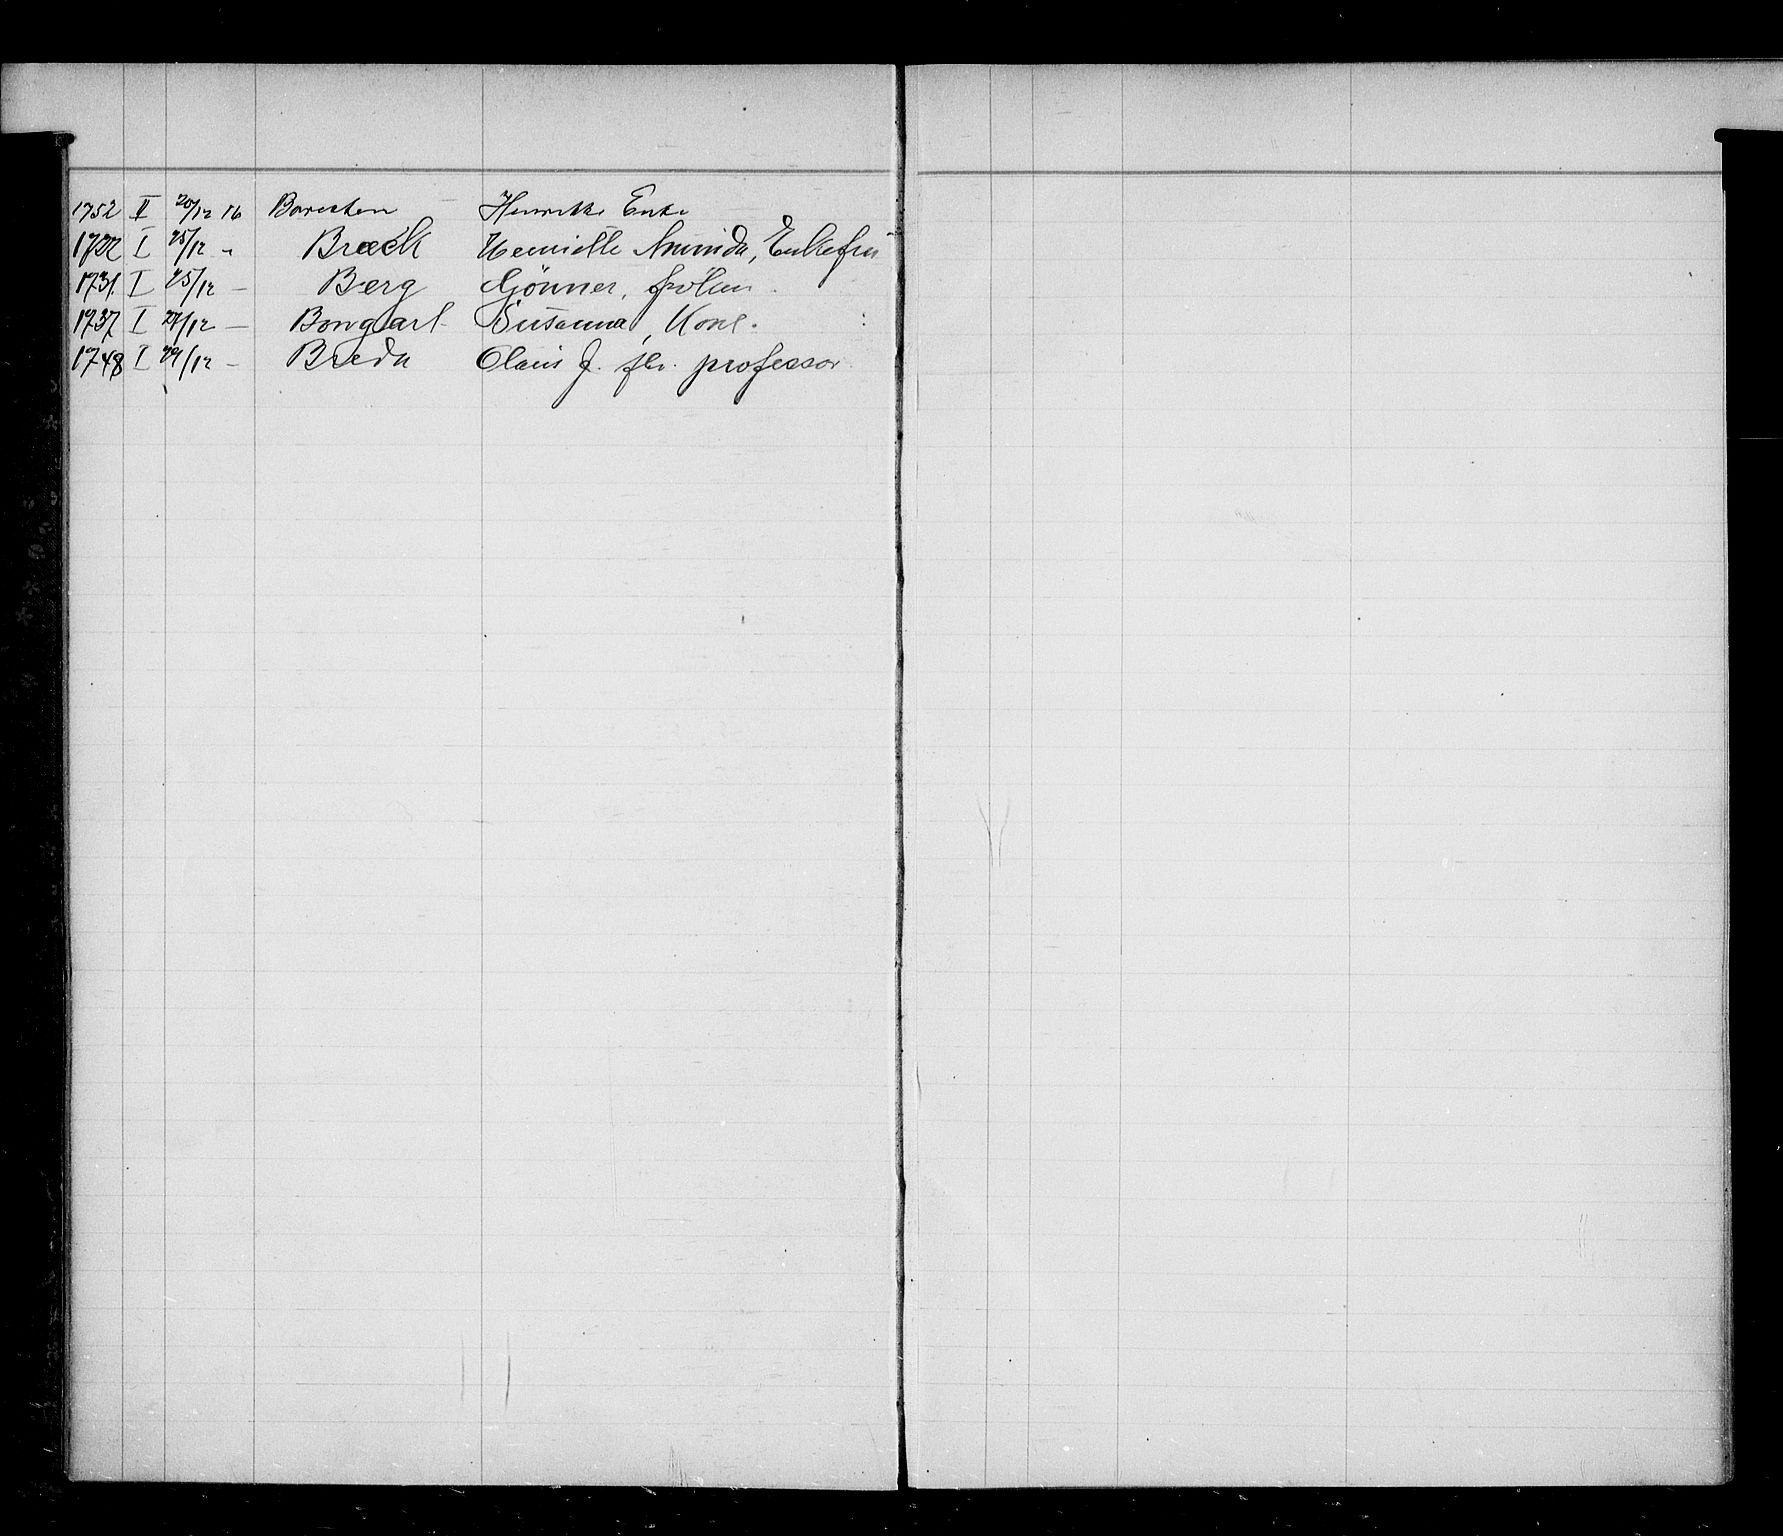 1752 II 20/12 16 Boresten Henrikke Enke
1722 I 25/12 " Bræck Henriette Amunda, Enkefru
1731. I 25/12 — Berg Gjönner, fröken
1737 I 27/12 — Bongart Susanna, Kone.
1748 I 29/12 — Breda Olaus J. fhv. professor